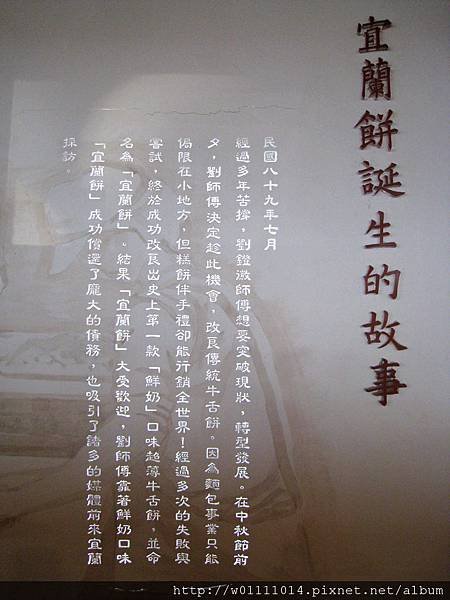 宜蘭餅誕生的故事
民國八十九年七月
經過多年苦撐，劉鐙徽師傅想要突破現狀，轉型發展。在中秋節前
夕，劉師傅決定趁此機會，改良傳統牛舌餅。因為麵包事業只能
侷限在小地方，但糕餅伴手禮卻能行銷全世界！經過多次的失敗與
嘗試，終於成功改良出史上第一款「鮮奶」口味超薄牛舌餅，並命
名為「宜蘭餅」。結果「宜蘭餅」大受歡迎，劉師傅靠著鮮奶口味
「宜蘭餅」成功償還了龐大的債務，也吸引了諸多的媒體前來宜蘭
採訪。
http://w01111014.pixnet.net/album